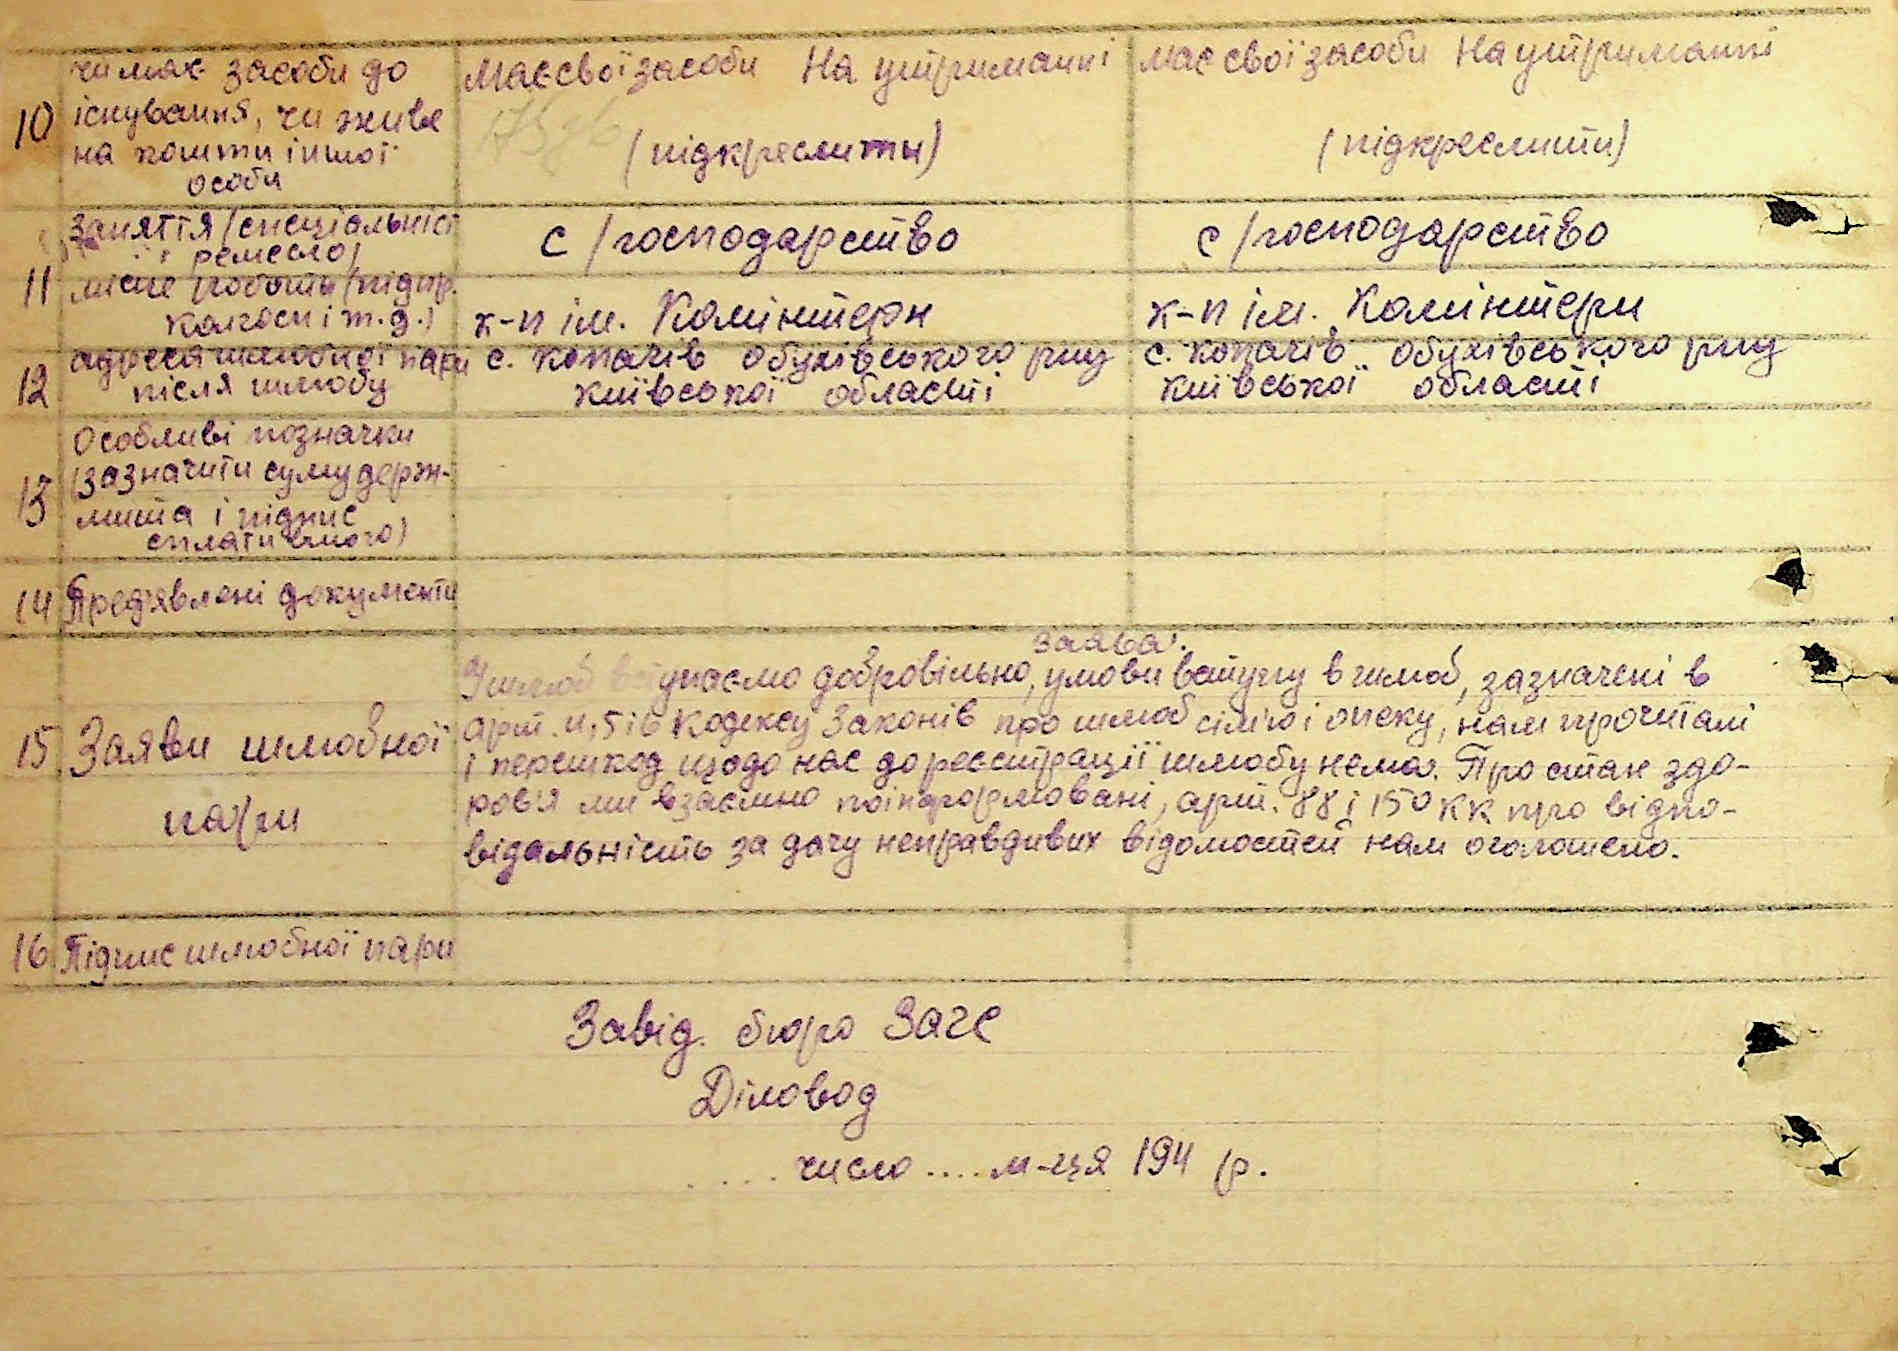 чи має засоби до
існування, чи живе
на кошти іншої
особи
10
Має свої засоби На утриманні
(підкреслити)
має свої засоби На утриманні
(підкреслити)
11
Заняття (спеціальніст
і ремесло)
с/господарство
с/господарство
місце роботи (підпр.
колгосп і т.д.)
к-п ім. Комінтерн
к-п ім. Комінтерн
12
адреса шлюбної пари
після шлюбу
с. копачів обухівського р-ну
київської області
с. копачів обухівського р-ну
київської області
13
Особливі позначки
(зазначити суму держ-
мита і підпис
сплатившого)
14 Пред'явлені документи
15 Заяви шлюбної
пари
Заява.
У шлюб вступаємо добровільно, умови вступу в шлюб, зазначені в
арт. 4, 5 і 6 Кодексу Законів про шлюб сім'ю і опеку, нам прочитані
і перешкод щодо нас до реєстрації шлюбу нема. Про стан здо-
ров'я ми взаємно поінформовані, арт. 88 і 150 КК про відпо-
відальність за дачу неправдивих відомостей нам оголошено.
16 Підпис шлюбної пари
Завід. бюро Загс
Діловод
.... число .... м-ця 194 р.